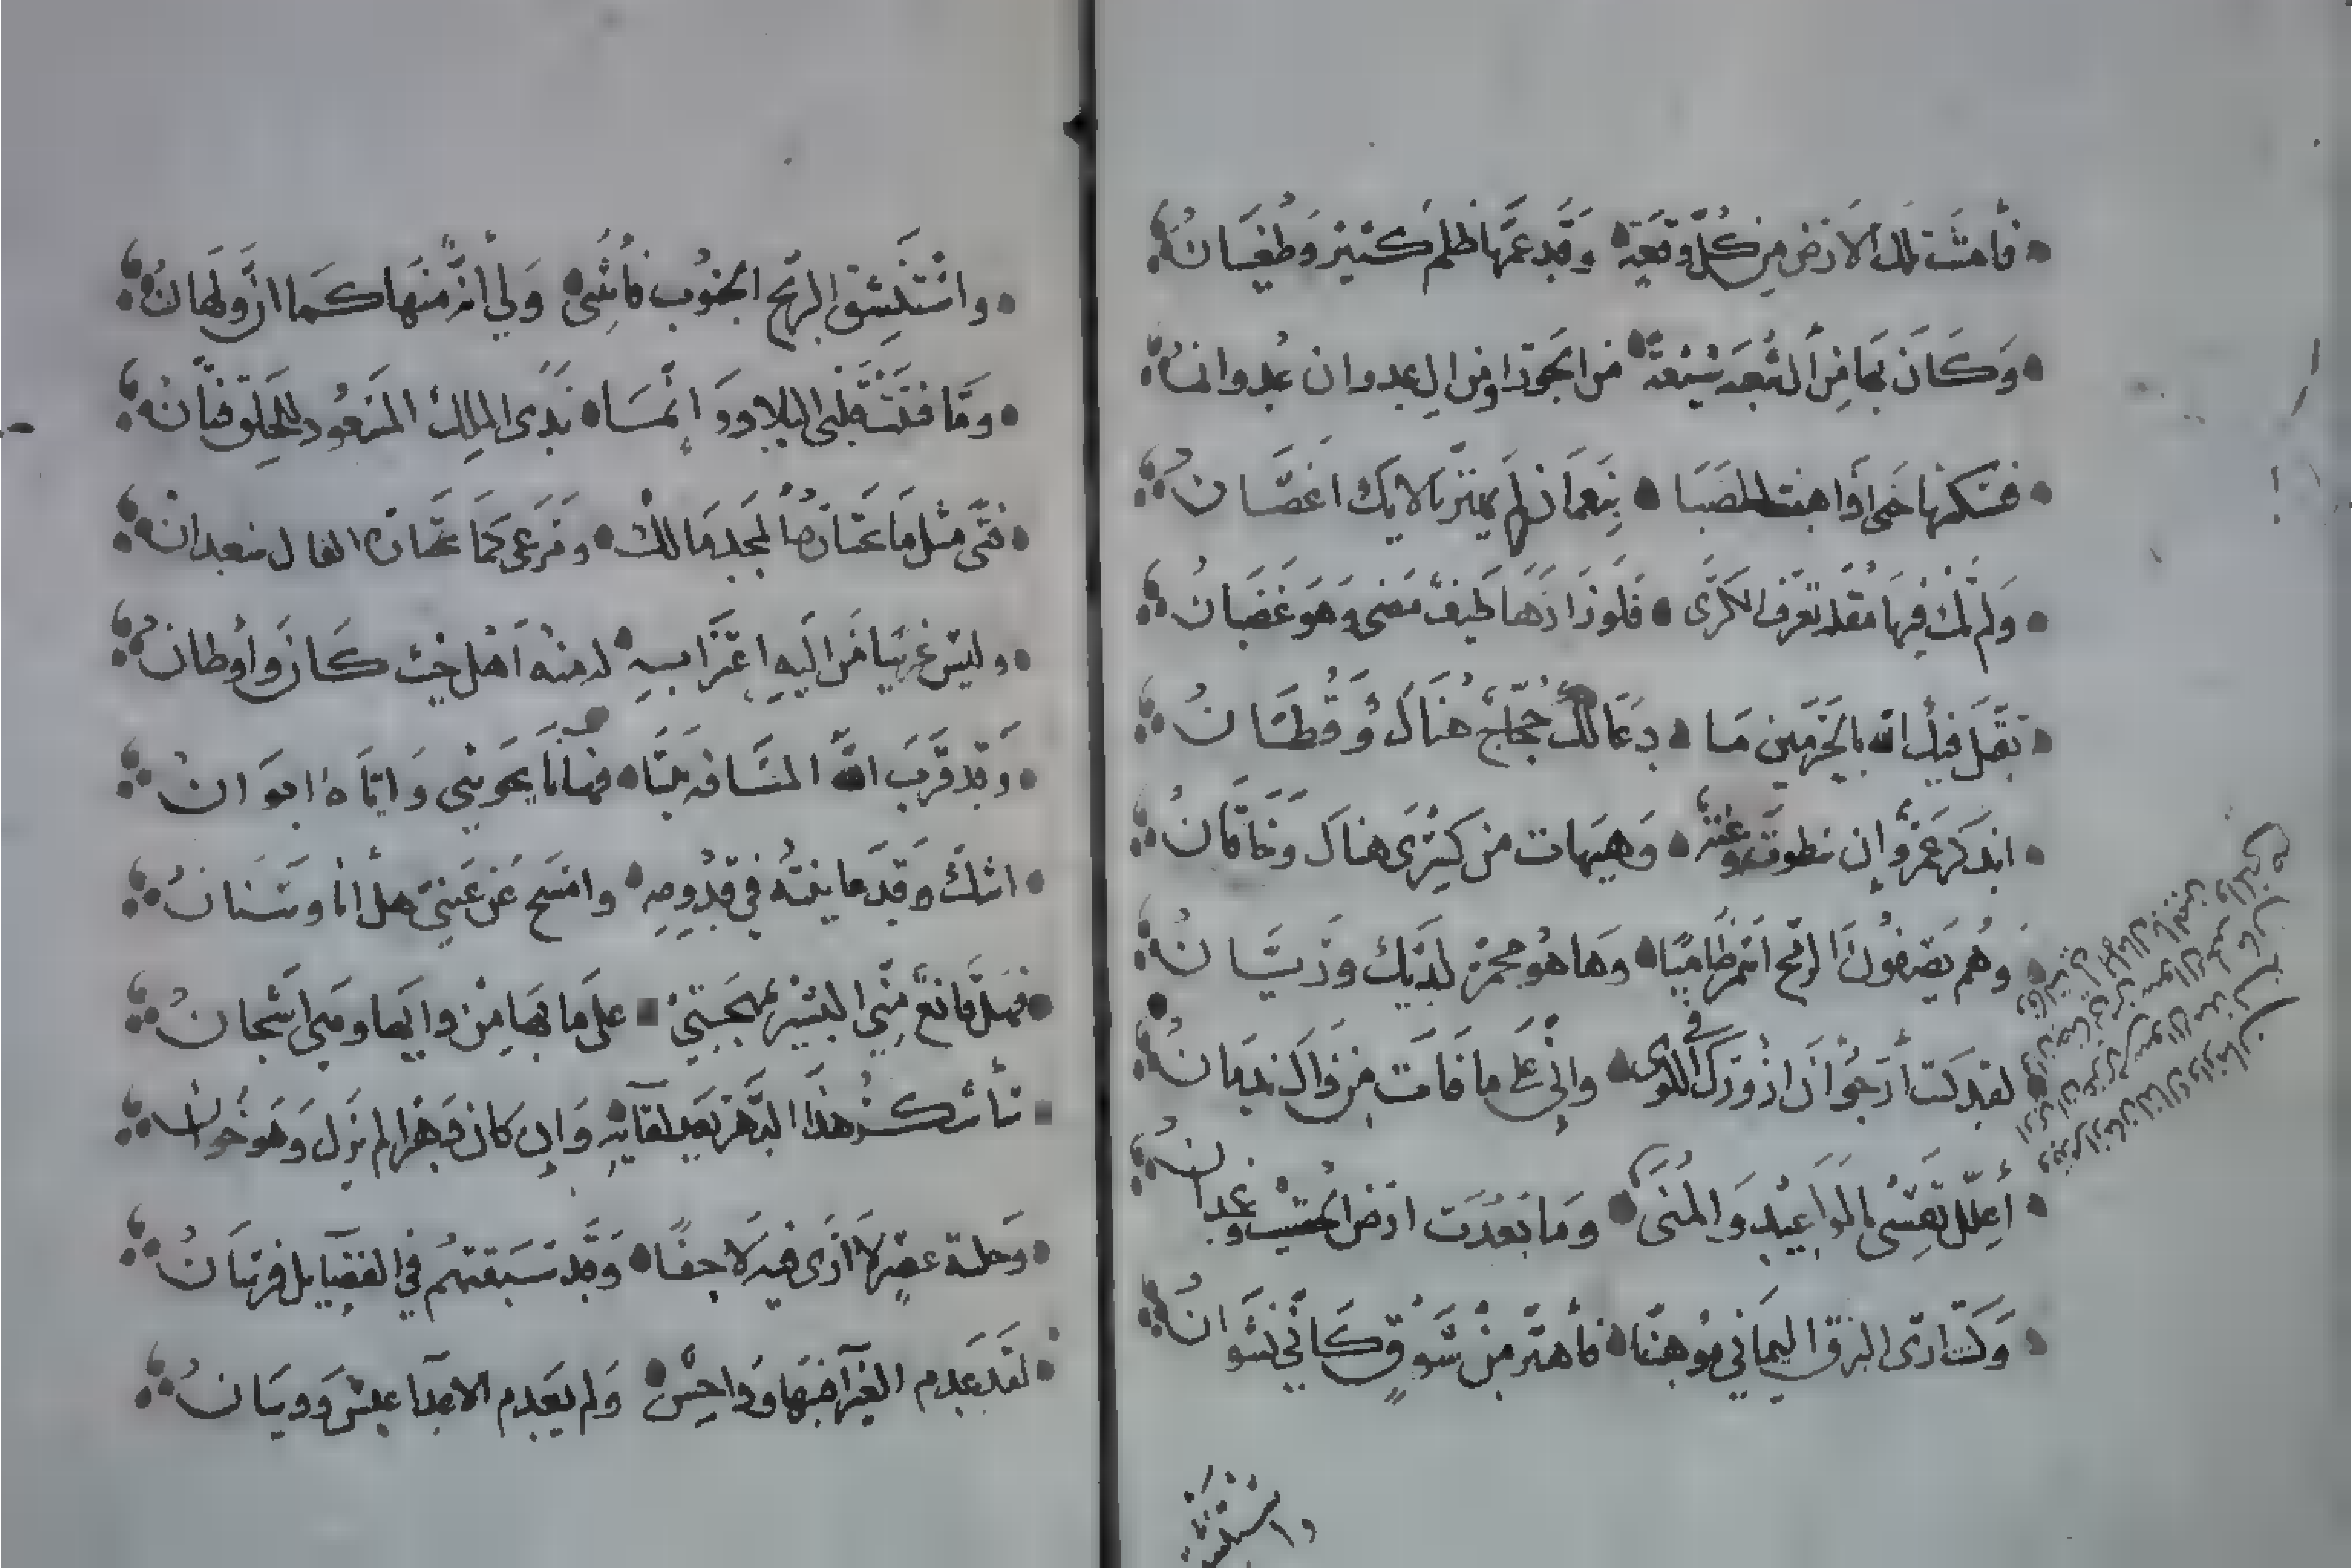 فأمنت تلك الارض من كل وقعة وقد عمها ظلم كثير وطغيان
وكان بها من البعد شيعة من الجود او من ال عدوان عدوان
فسكنها حتى لو اهتفت الصبا بنعمان لم يهتز بالايك اغصان
ولم تك فيها مقلة تعرف الكرى فلو زارها طيف مضى وهو غضبان
تقبل فيك الله بالحرمين ما دعا لك حجاج هناك وقطان
ايذكر عمرو ان سطوت وعنتر وهيهات من كسرى هناك وخاقان
وهم يصفون الرمح اسمر ظاميا وها هو محمر لديك وريان
لقد كنت أرجو أن ازورك في الكرى واني على ما فات من ذاك ندمان
أعلل نفسي بالمواعيد والمنى وما بعدت ارض الكثيب وغمدان
وكنت ارى البرق اليماني موهنا فأهتز من شوق كأني نشوان
واستنشق
واستنشق الريح الجنوب فأنثني ولي أنة منها كما ان ولهان
وما فتنت قلبي البلاد وانما ندى الملك المسعود للخلق فتان
فتى مثل ما يختاره المجد مالك وفرع كما يختاره الفال سعدان
وليس غريبا من اليه اغترابه له منه اهل حيث كان واوطان
وقد قرب الله المسافة بيننا فها انا يحويني واياه ايوان
اشك وقد عاينته في قدومه وامسح عن عيني هل أنا وسنان
فهل قانع مني البشير بمهجتي على ما بها من دايها وهي اشجان
سأشكر هذا الدهر بعد لقايه وان كان دهرا لم يزل وهو خوان
وحلبة عصر لا أرى فيه لاحقا وقد سبقتهم في الفضايل فرسان
لقد عدم الغبرا فيها وداحس ولم يعدم الاعدا عبس وذبيان